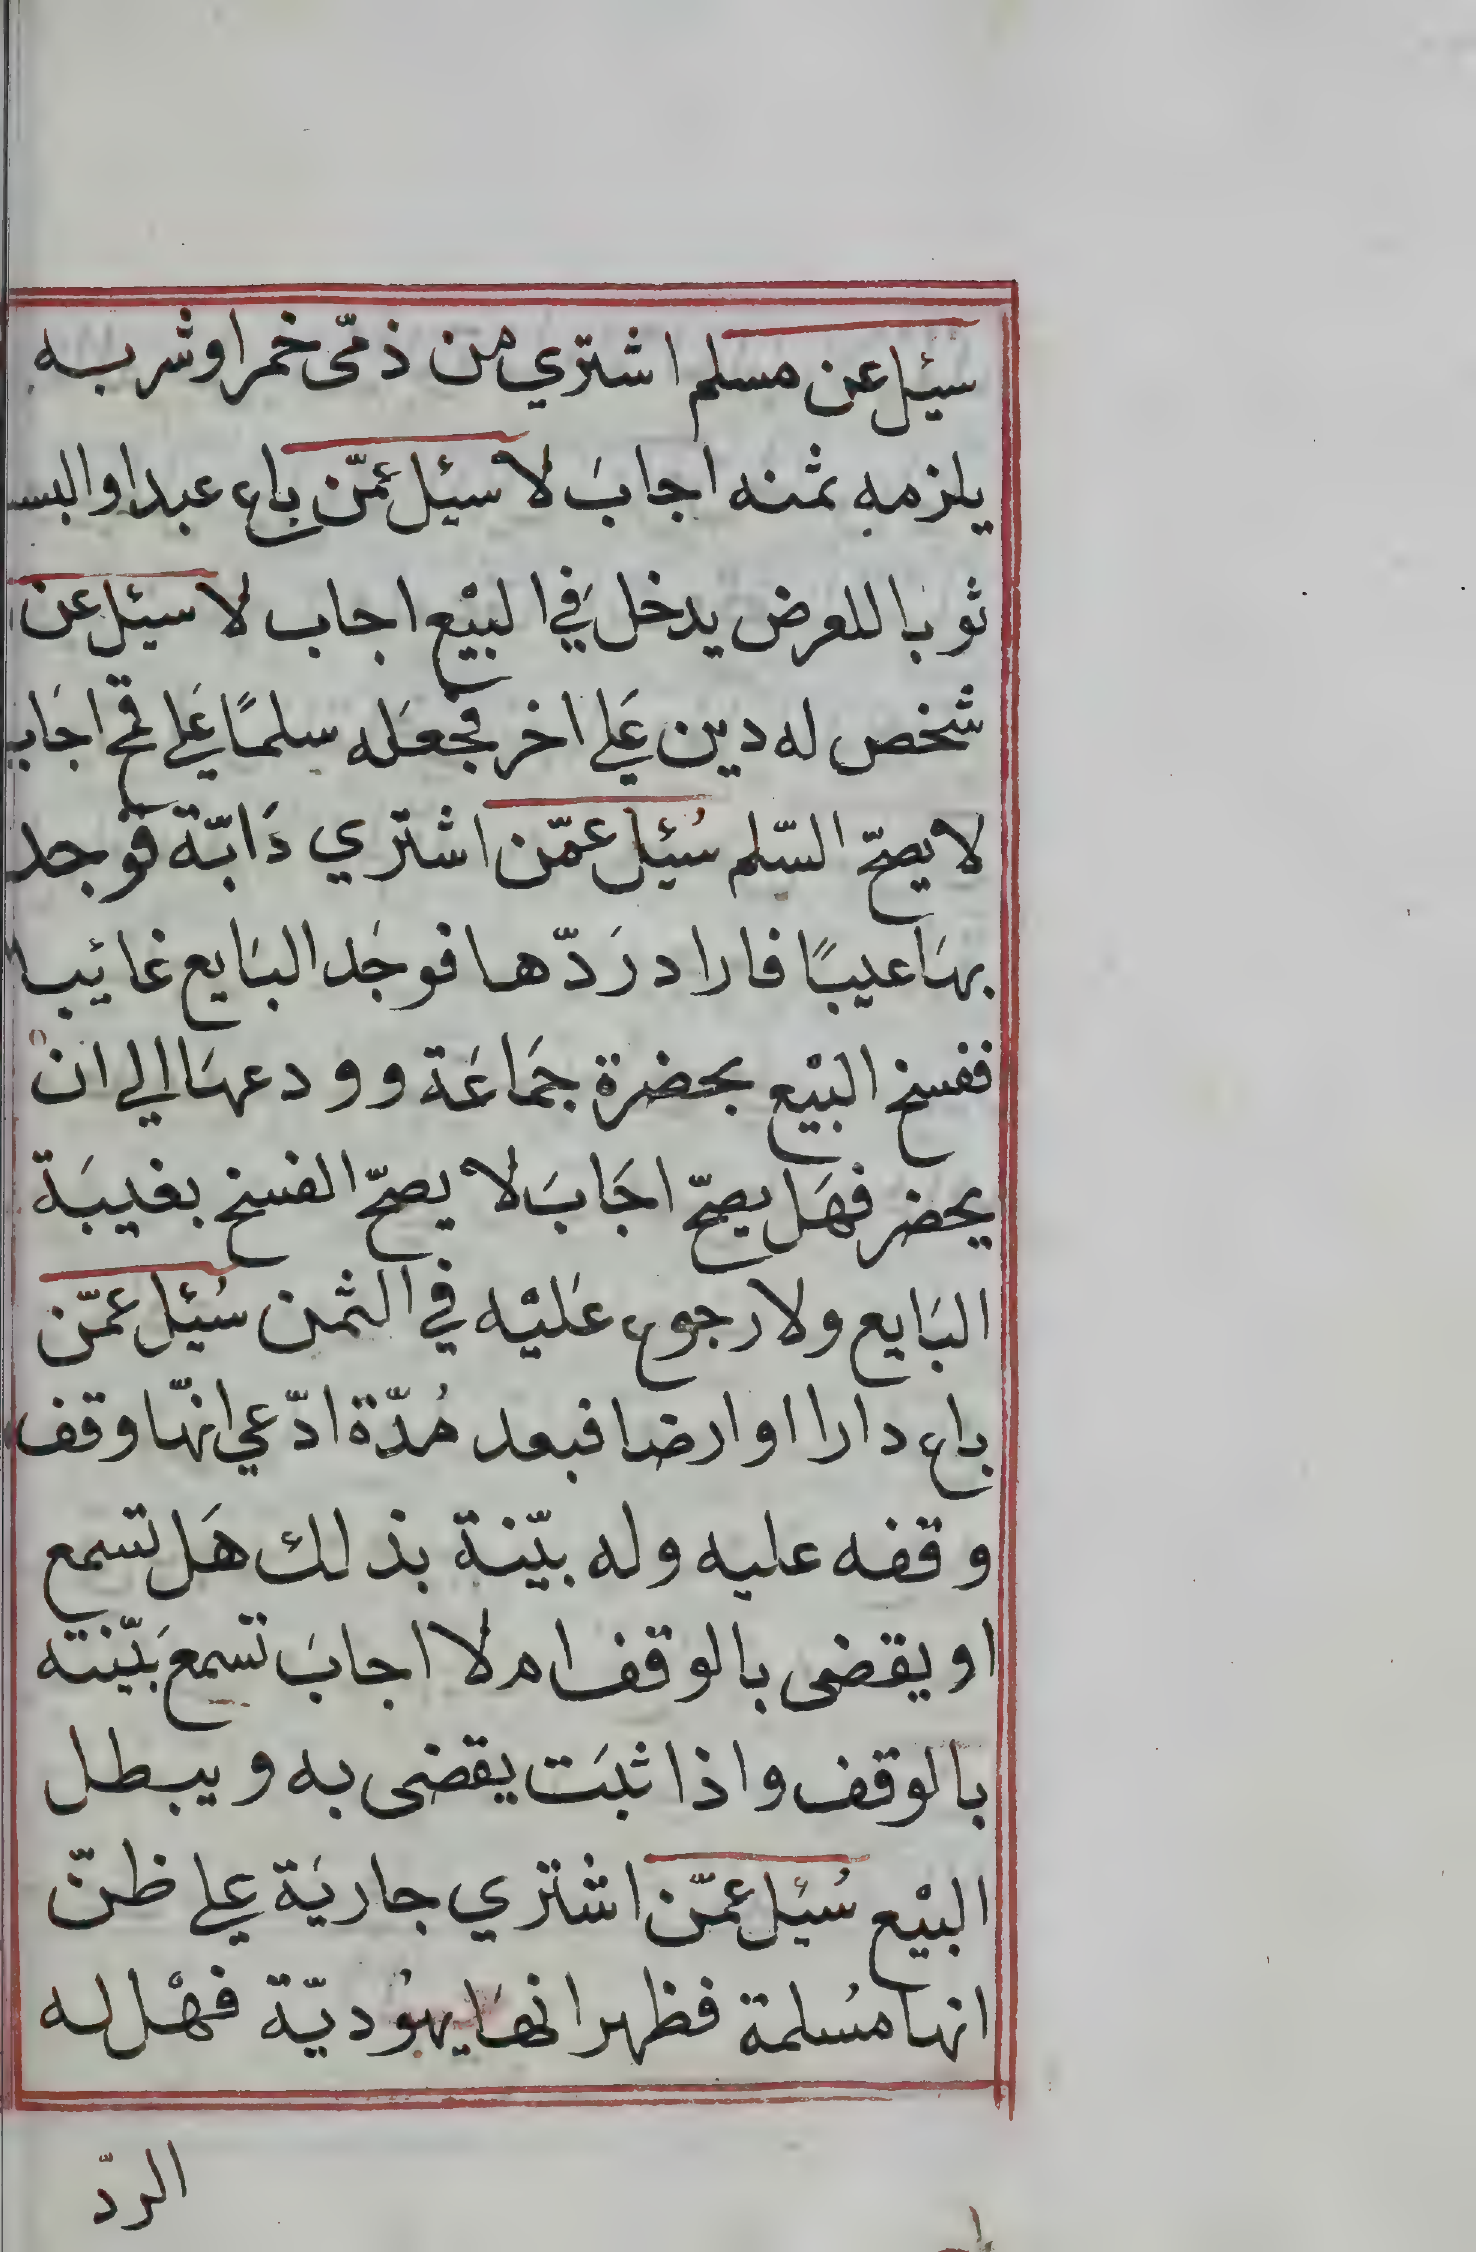 سيئل عن مسلم اشتري من ذمّى خمرا وشربه
يلزمه ثمنه اجابَ لا سيئل عمّن باع عبدا والبس
ثوبا للعرض يدخل في البيْع اجاب لا سيئل عن
شخص له دين عَلي اخر فجعَله سلمًا عَلي قمح اجَاب
لا يصحّ السّلم سُئيل عمّن اشتري دَابّة فوجد
بهَا عيبًا فاراد رَدّها فوجَد البَايع غائيب
ففسخ البيْع بحضرة جمَاعَة وودعهَا الي ان
يحضر فهَل يصحّ اجَابَ لا يصحّ الفسخ بغيبَة
البَايع ولا رجوع عَليْه في الثمن سُيئل عمّن
باع دارا او ارضا فبعد مُدّة ادّعي انهّا وقف
وقفه عليه وله بيّنة بذلك هَل تسمع
او يقضى بالوقف ام لا اجابَ تسمعَ بيّنته
بالوقف واذا ثبَت يقضى به ويبطل
البيْع سُيئل عمّن اشتري جاريَة علي ظنّ
انها مسُلمة فظهر انهَا يهُوديّة فهْل له
الردّ